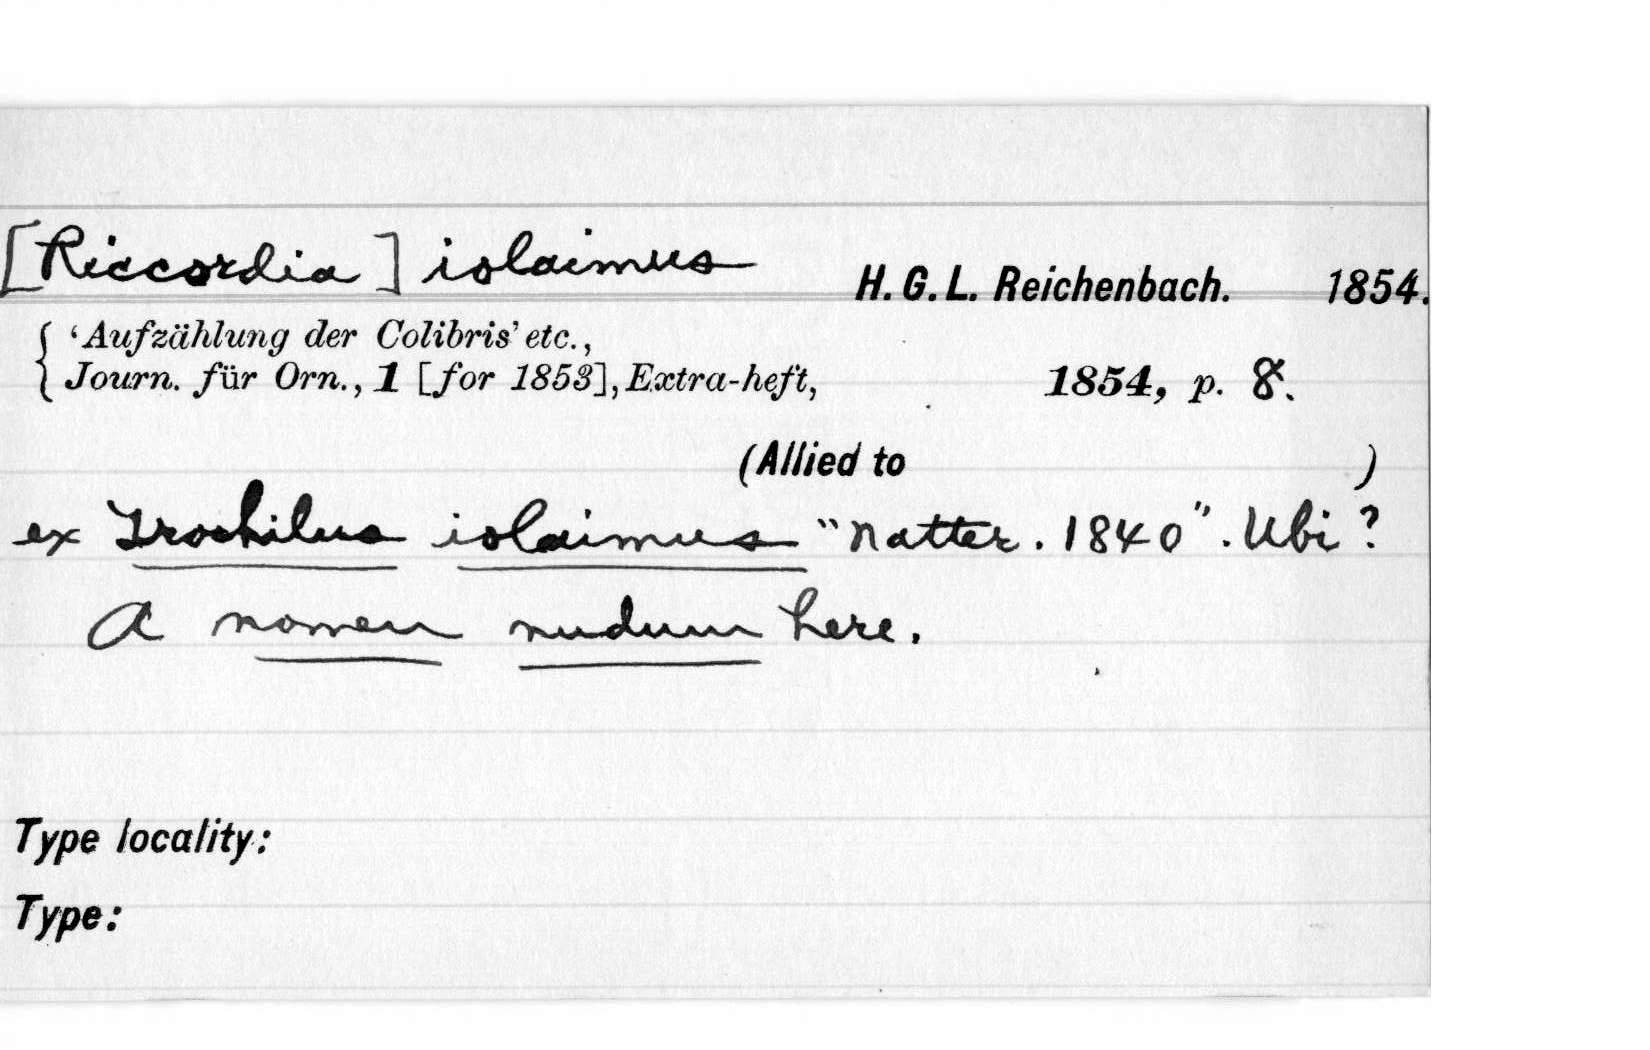 [Riccordia] iolaimus
H. G. L. Reichenbach. 1854.
'Aufzählung der Colibris' etc.,
Journ. für Orn., 1 [for 1853], Extra-heft, 1854, p. 8.
(Allied to )
ex Trochilus iolaimus "Natter. 1840". Ubi?
A nomen nudum here.
Type locality:
Type: